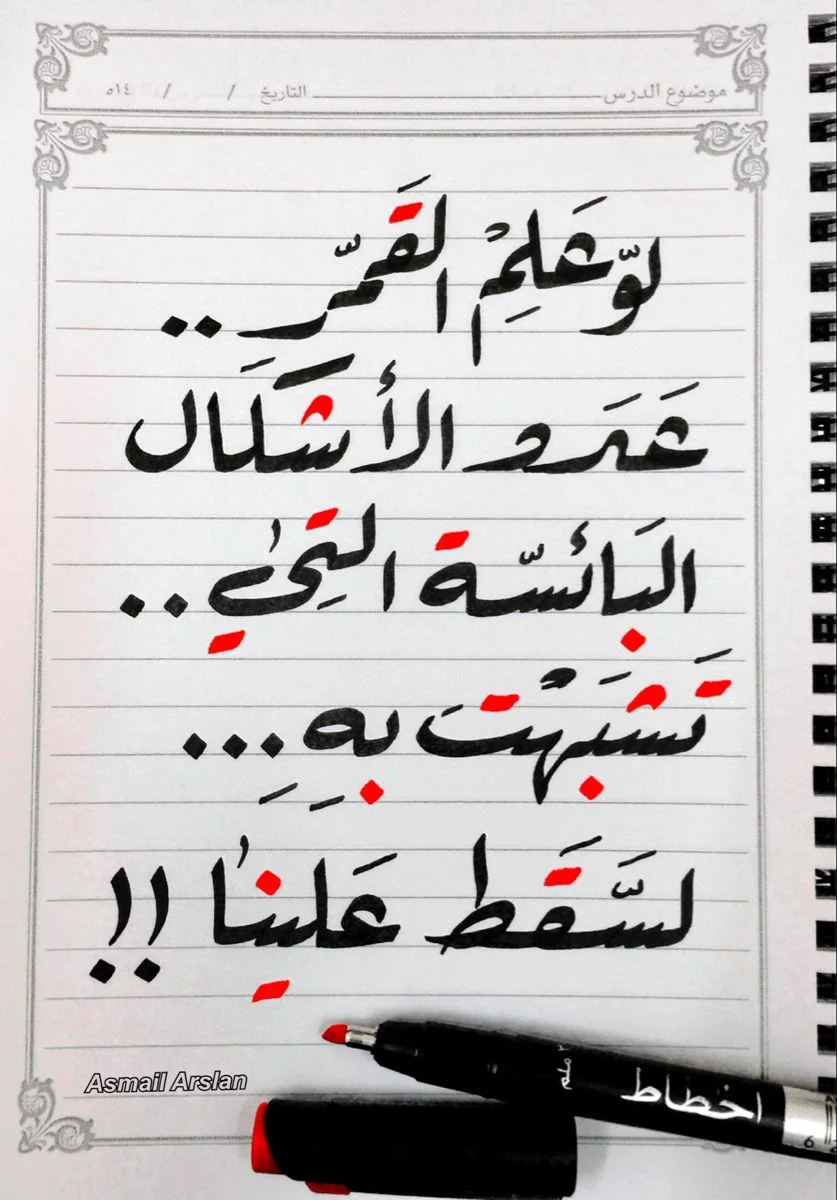 موضوع الدرس التاريخ / / ٥١٤
لوّ عَلِمْ القَمّر ..
عَدَدو الأشكَال
البَائسّة التِيٰ ..
تَشبَهْتَ بِهِ ...
لسَّقَط عَلينٰا !!
Asmail Arslan
اخطاط
٢ ملم
6